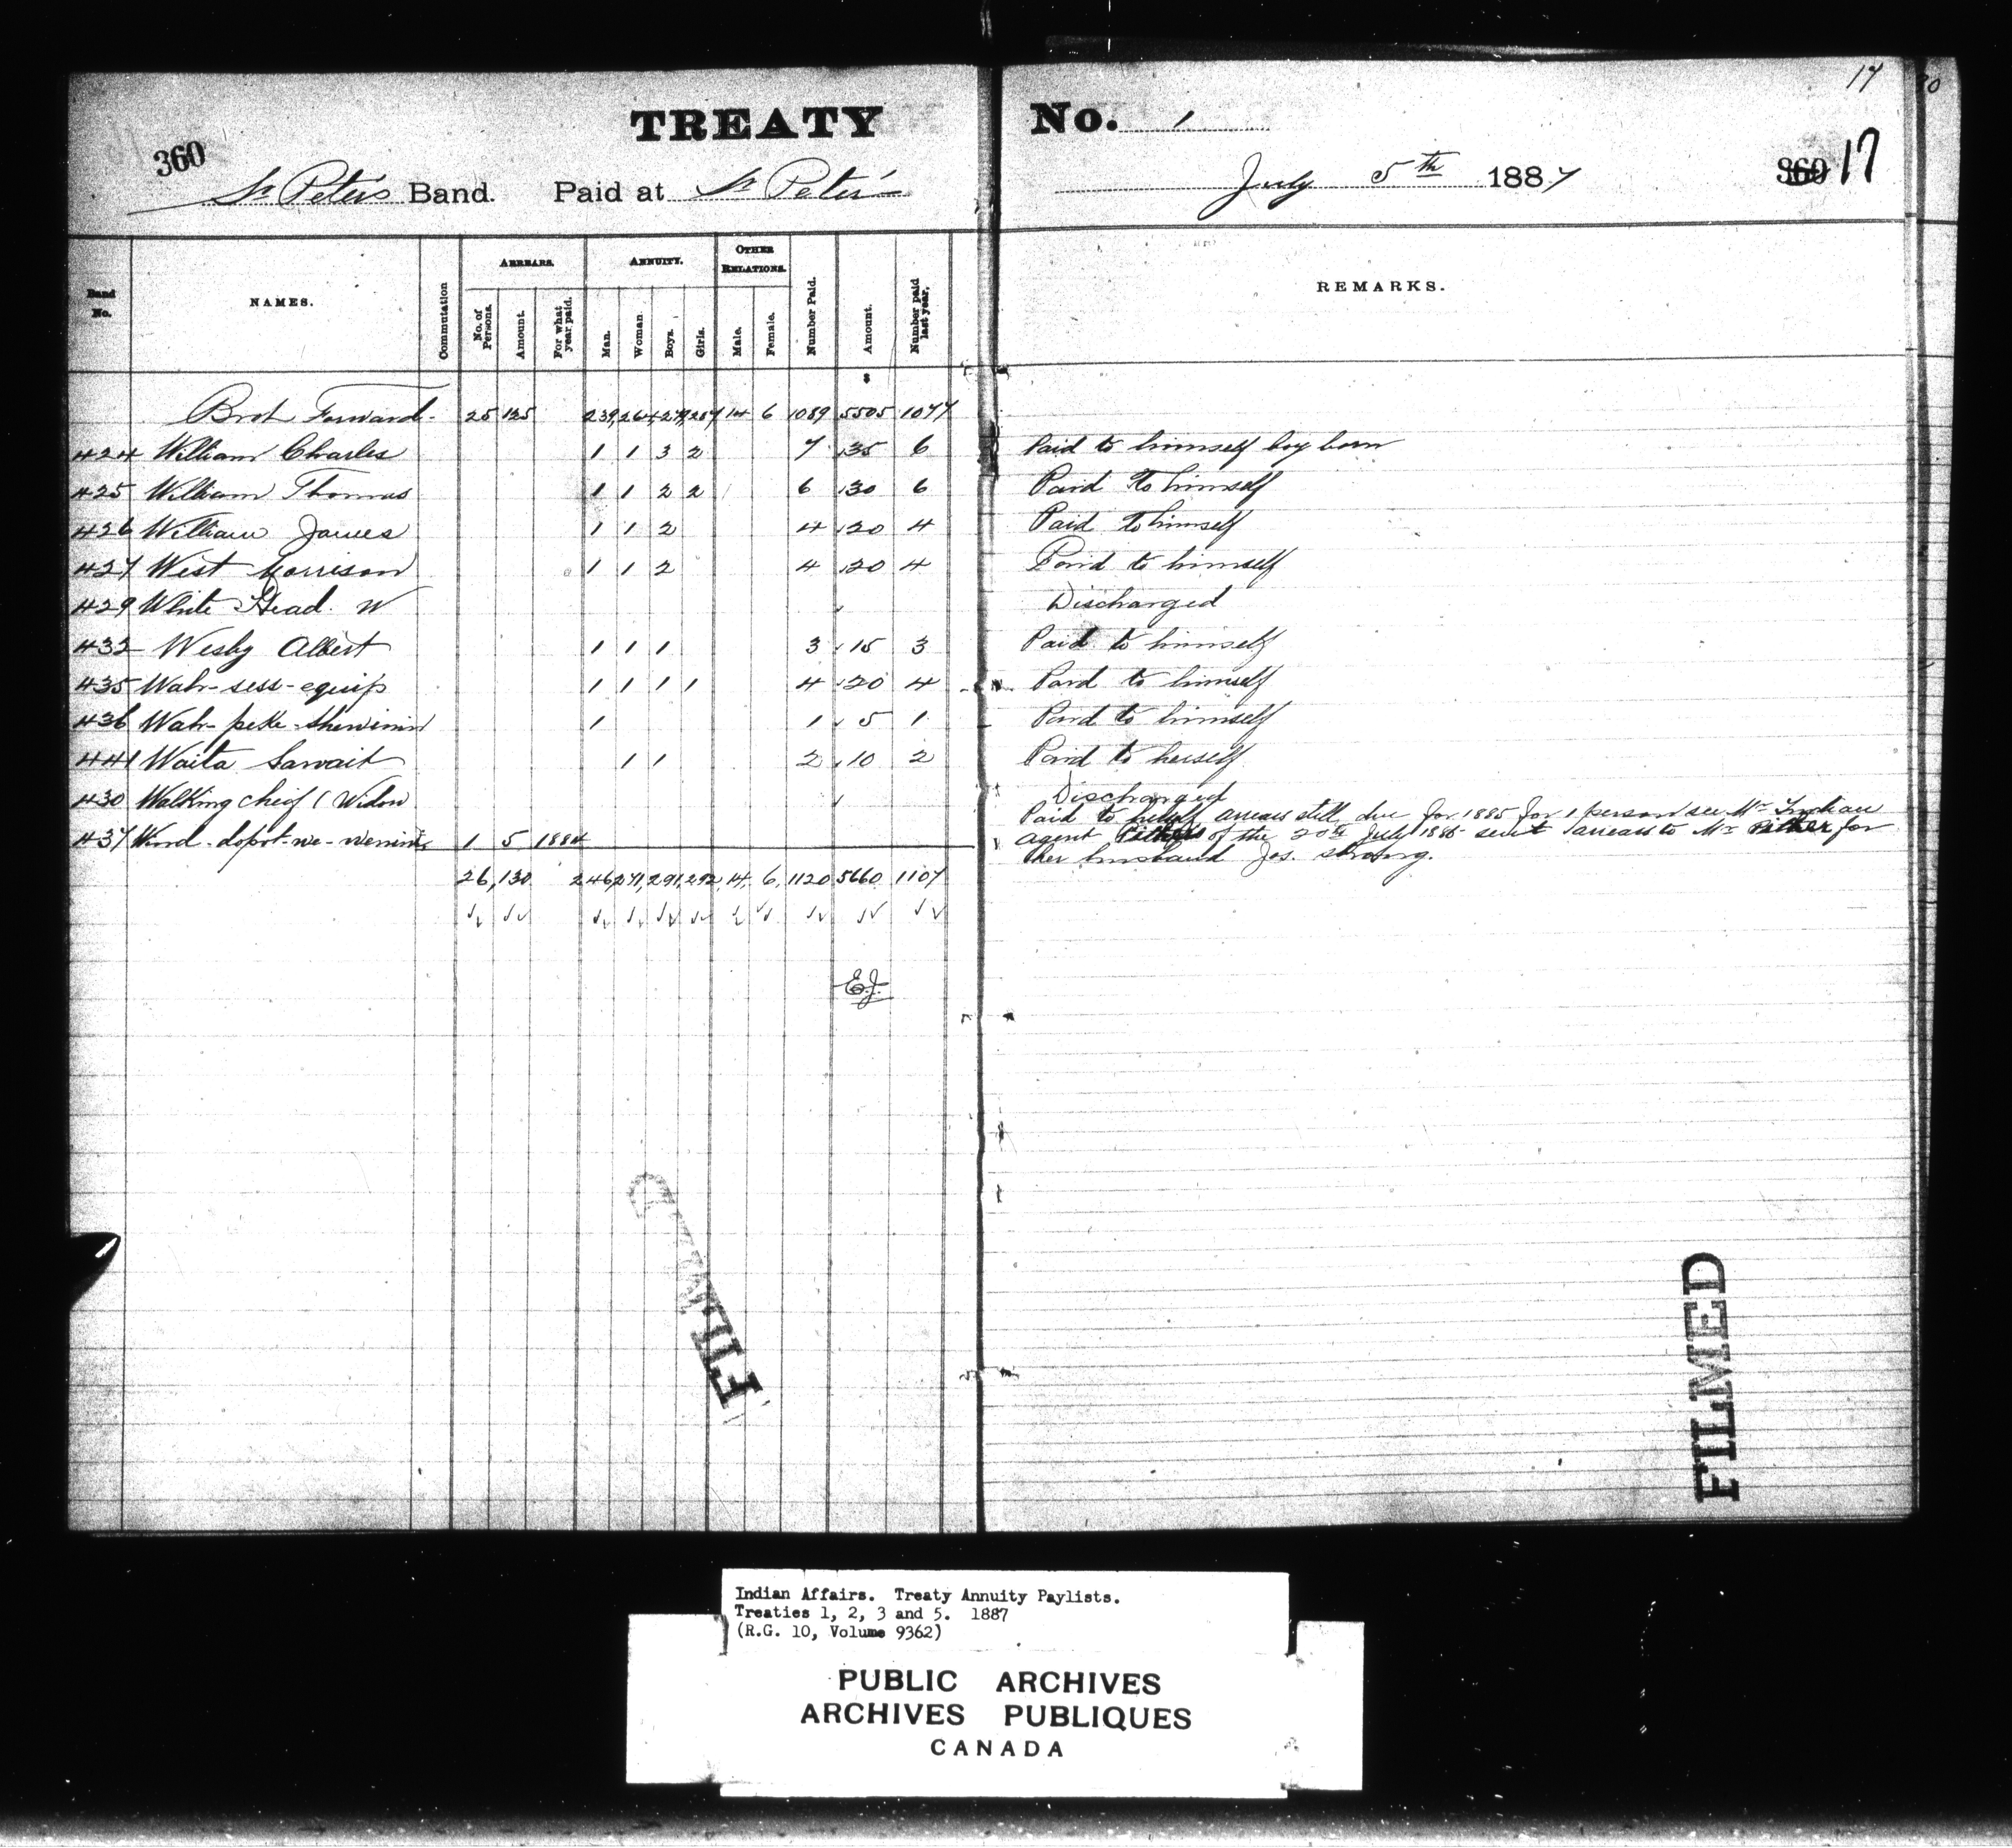 17
TREATY No. 1
360
St Peters Band. Paid at St Peters July 5th 1887 360 17
Band No. NAMES. Commutation ARREARS. No. of Persons. Amount. For what year paid. ANNUITY. Man. Woman Boys. Girls. OTHER RELATIONS. Male. Female. Number Paid. Amount. Number paid last year. REMARKS.
$
Brot Forward 25 125 239 264 279 287 14 6 1089 5505 1077
424 William Charles 1 1 3 2 7 35 6 Paid to himself boy born
425 William Thomas 1 1 2 2 6 30 6 Paid to himself
426 William James 1 1 2 4 20 4 Paid to himself
427 West Morrison 1 1 2 4 20 4 Paid to himself
429 White Head. W Discharged
432 Wesby Albert 1 1 1 3 15 3 Paid to himself
435 Wah-sess-equip 1 1 1 1 4 20 4 Paid to himself
436 Wah-peke-shewinin 1 1 5 1 Paid to himself
441 Waita Sawait 1 1 2 10 2 Paid to herself
430 Walking cheif (Widow Discharged
437 Wend-dopot-we-weninie 1 5 1884 Paid to herself arrears still due for 1885 for 1 person see Mr Indian
agent of the 20th July 1885 sent arrears to Mr Pither for
her husband Jos. strong.
26 130 246 271 291 292 14 6 1120 5660 1107
E.J.
FILMED
FILMED
Indian Affairs. Treaty Annuity Paylists.
Treaties 1, 2, 3 and 5. 1887
(R.G. 10, Volume 9362)
PUBLIC ARCHIVES
ARCHIVES PUBLIQUES
CANADA